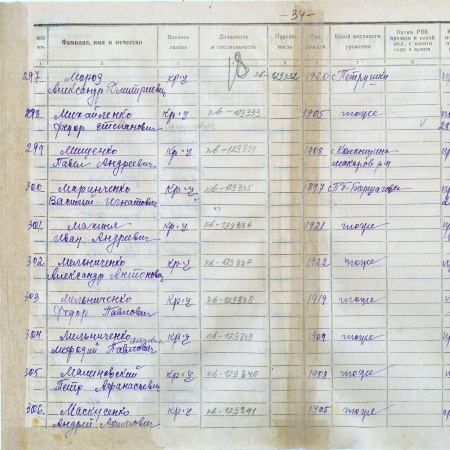 -34-
№№ п/п Фамилия, имя и отчество Военное звание Должность и специальность Партийность Год рождения Какой местности уроженец Каким РВК призван и какой обл., с какого года в армии
1 2 3 4 5 6 7 8
297 Мороз кр-ц кв-129332 1920 с Петрушки
Александр Дмитриевич
298 Михайленко кр-ц кв-129333 1905 тоже
Федор Степанович
299 Мищенко кр-ц кв-129334 1908
Павел Андреевич макаров р-а
300 Маринченко кр-ц кв-129335 1897
Василий Игнатович
301 кр-ц кв-129336 1921 тоже
Иван Андреевич
302 Мельниченко кр-ц кв-129337 1922 тоже
Александр Антонович
303 Мельниченко кр-ц кв-129338 1919 тоже
Федор Павлович
304 Мельниченко кр-ц кв-129339 1909 тоже
Мефодий Павлович
305 Малиновский кр-ц кв-129340 1903 тоже
Петр Афанасьевич
306 кр-ц кв-129341 1905 тоже
Андрей